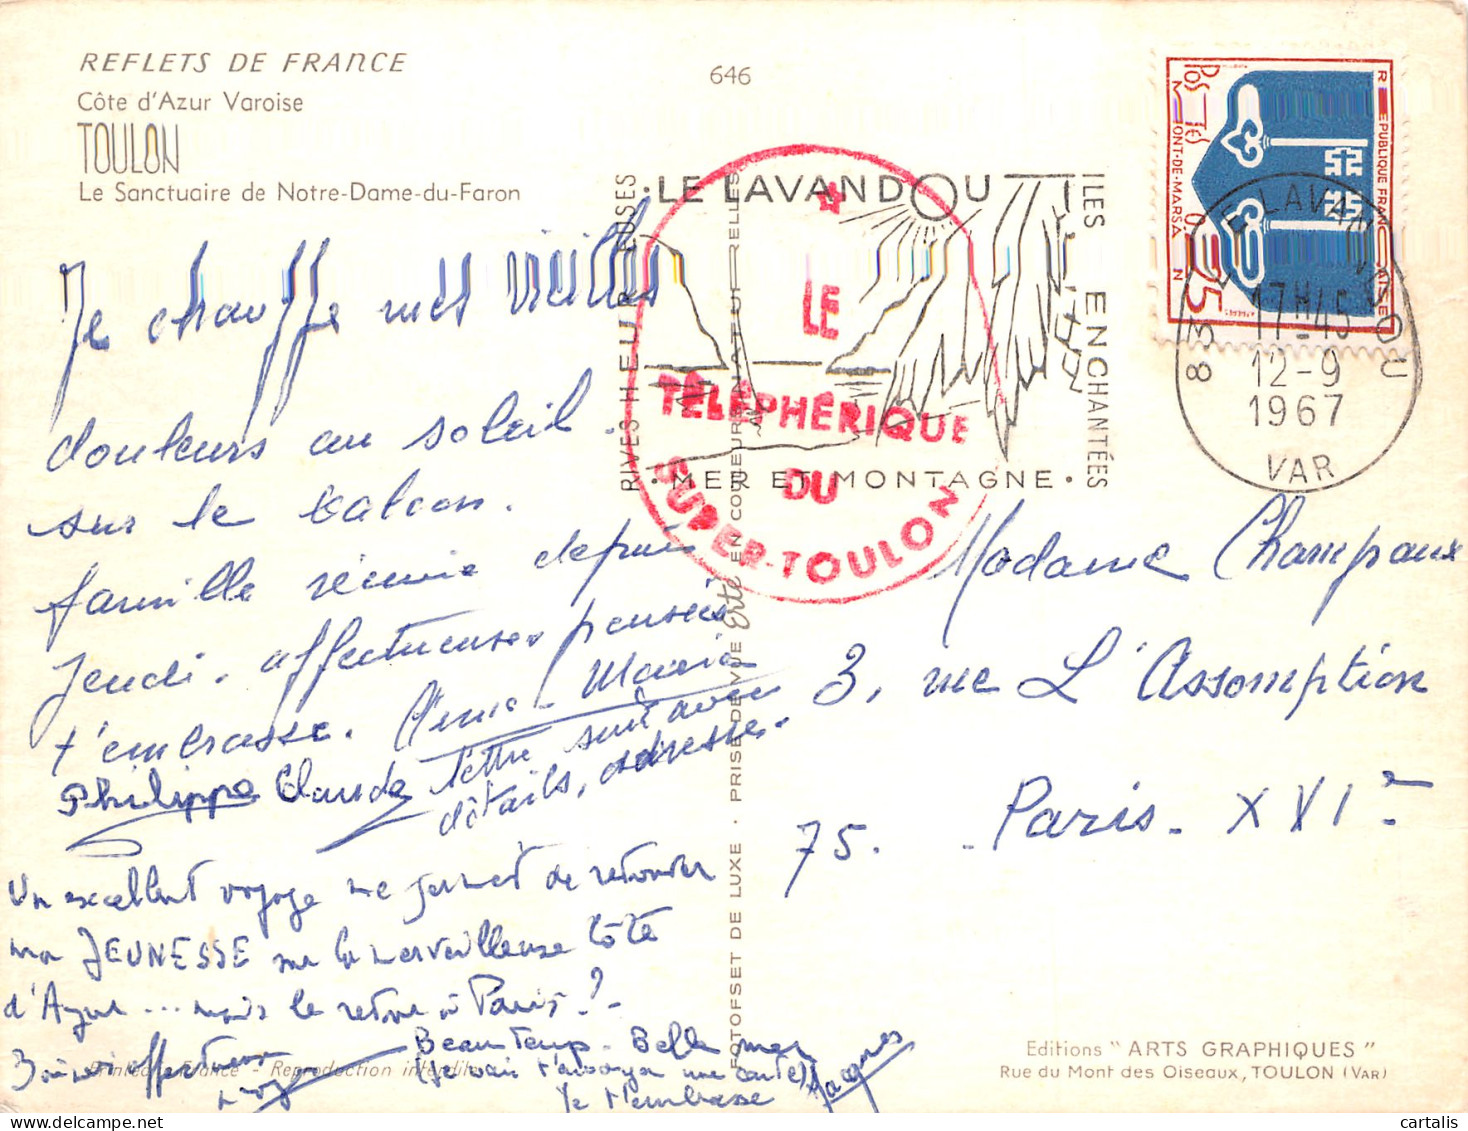 REFLETS DE FRANCE
Côte d'Azur Varoise
TOULON
Le Sanctuaire de Notre-Dame-du-Faron
646
RÉPUBLIQUE FRANÇAISE
POSTES
MONT-DE-MARSAN
0,25
RIVES HEUREUSES
• LE LAVANDOU
ILES ENCHANTÉES
• MER ET MONTAGNE •
83 LE LAVANDOU
17H45
12-9
1967
VAR
LE
TÉLÉPHÉRIQUE
DU
SUPER-TOULON
Je chauffe mes vieilles
douleurs au soleil
sur le balcon.
famille réunie depuis
jeudi. affectueuses pensées
t'embrasse. Anne-Marie
lettre suit avec
détails, adresse.
Philippe Claude
Un excellent voyage me permet de retrouver
ma JEUNESSE sur la merveilleuse Côte
d'Azur ... mais le retour à Paris ?
Beau temps. Belle mer
(Je vais t'envoyer une carte)
Je t'embrasse Jacques
Madame Champaux
3, rue L'Assomption
75. - Paris - XVIe
FOTOFSET DE LUXE • PRISE DE VUE Erté EN COULEURS NATURELLES
Imprimé en France - Reproduction interdite
Editions "ARTS GRAPHIQUES"
Rue du Mont des Oiseaux, TOULON (VAR)
cartalis